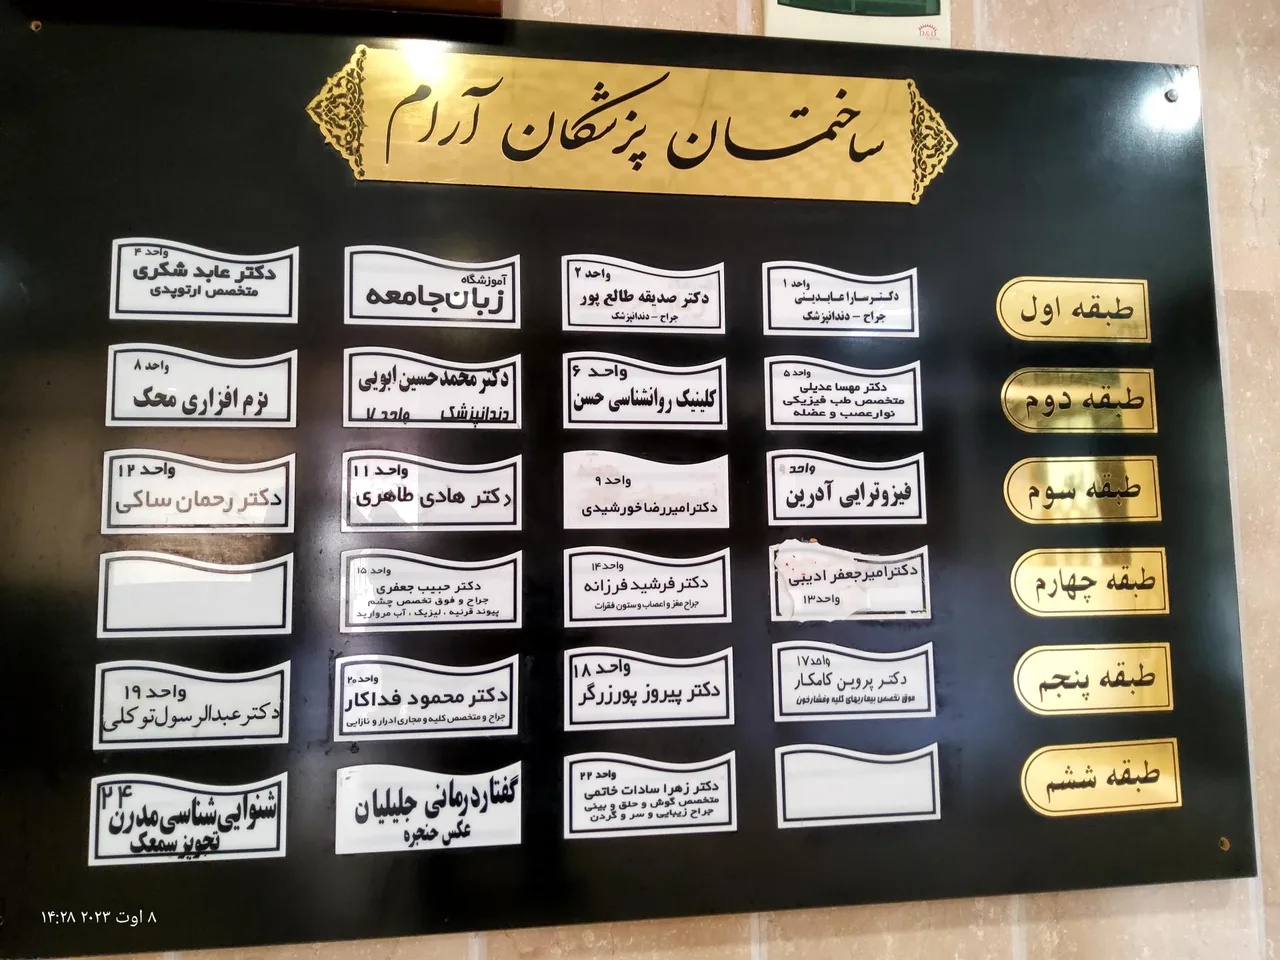 D&D
ساختمان پزشکان آرام
طبقه اول
واحد ۱
دکترسارا عابدینی
جراح - دندانپزشک
واحد ۲
دکتر صدیقه طالع پور
جراح - دندانپزشک
آموزشگاه
زبان جامعه
واحد ۴
دکتر عابد شکری
متخصص ارتوپدی
طبقه دوم
واحد ۵
دکتر مهسا عدیلی
متخصص طب فیزیکی
نوارعصب و عضله
واحد ۶
کلینیک روانشناسی حسن
دکتر محمدحسین ابویی
دندانپزشک واحد ۷
واحد ۸
نرم افزاری محک
طبقه سوم
واحد ۹
فیزوتراپی آدرین
واحد ۹
دکترامیررضاخورشیدی
واحد ۱۱
دکتر هادی طاهری
واحد ۱۲
دکتر رحمان ساکی
طبقه چهارم
دکترامیرجعفر ادیبی
واحد۱۳
واحد ۱۴
دکتر فرشید فرزانه
جراح مغز و اعصاب و ستون فقرات
واحد ۱۵
دکتر حبیب جعفری
جراح و فوق تخصص چشم
پیوند قرنیه ، لیزیک ، آب مروارید
طبقه پنجم
واحد۱۷
دکتر پروین کامکار
فوق تخصص بیماریهای کلیه وفشارخون
واحد ۱۸
دکتر پیروز پورزرگر
واحد۲۰
دکتر محمود فداکار
جراح و متخصص کلیه و مجاری ادرار و نازایی
واحد ۱۹
دکترعبدالرسول توکلی
طبقه ششم
واحد ۲۲
دکتر زهرا سادات خاتمی
متخصص گوش و حلق و بینی
جراح زیبایی و سر و گردن
گفتاردرمانی جلیلیان
عکس حنجره
۲۴
شنوایی شناسی مدرن
تجویز سمعک
۸ اوت ۲۰۲۳ ۱۴:۲۸